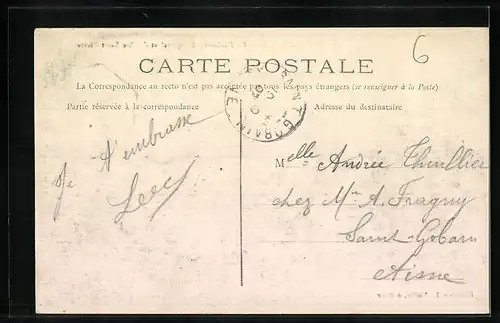 CARTE POSTALE
La Correspondance au recto n'est pas acceptée par tous les pays étrangers (se renseigner à la Poste)
Partie réservée à la correspondance
Adresse du destinataire
6
Je t'embrasse
Melle Andrée Thuillier
chez Mr A. Fragny
Saint-Gobain
Aisne